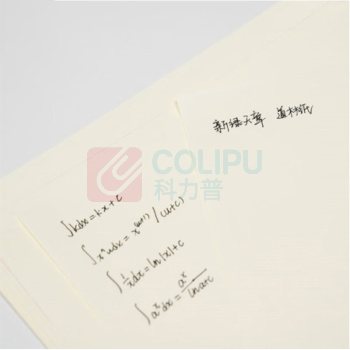 新绿天章 道林纸
COLIPU
科力普
∫kdx=kx+c
∫x^udx=x^(u+1)/(u+c)
∫1/x dx=ln|x|+c
∫a^x dx=a^x/lna+c